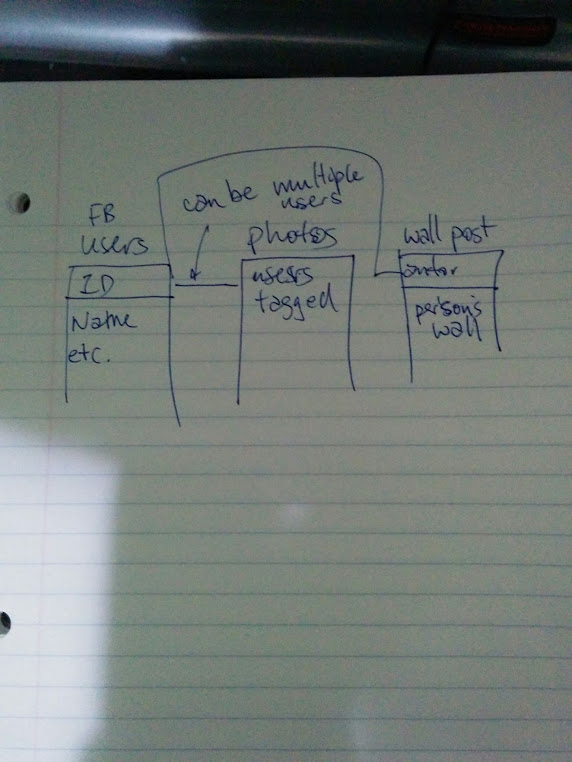 can be multiple
users
FB
users
ID
Name
etc.
photos
users
tagged
wall post
person's
wall